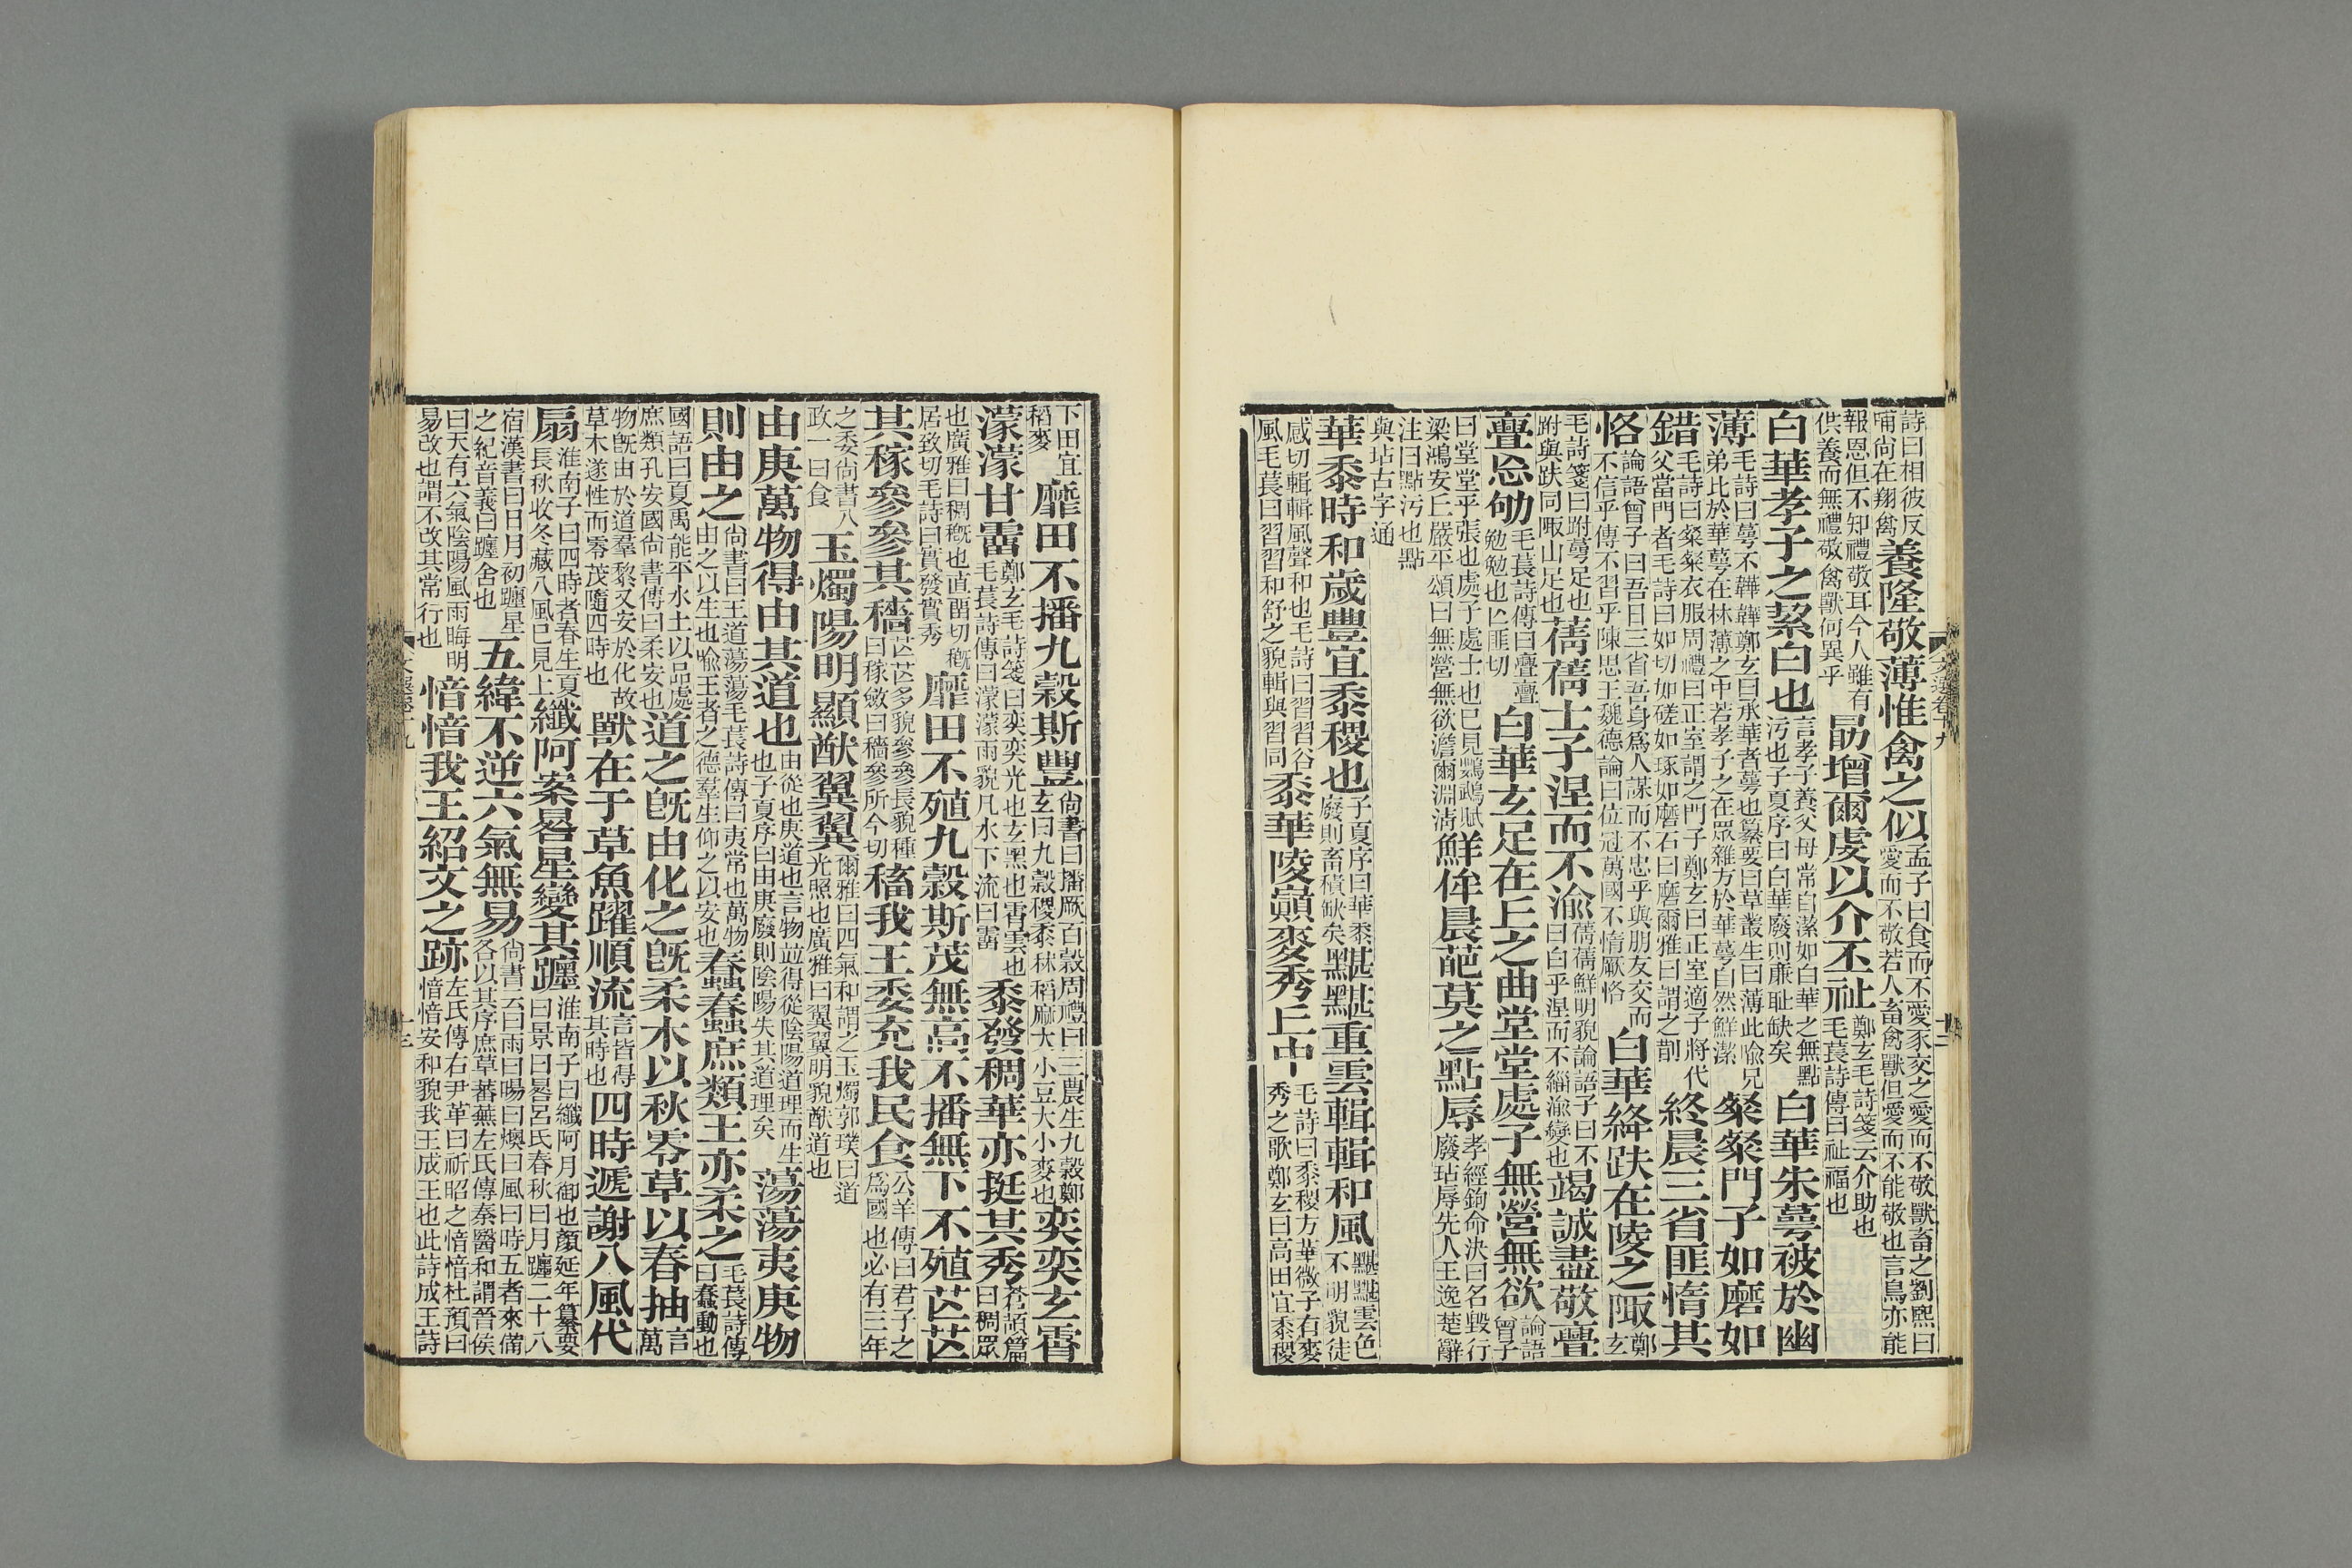 詩曰相彼反哺尚在翔禽養隆敬薄惟禽之似孟子曰食而不愛豕交之愛而不敬獸畜之劉熙曰愛而不敬若人畜禽獸但愛而不能敬也言鳥亦能
報恩但不知禮敬耳今人雖有供養而無禮敬禽獸何異乎勗增爾虔以介丕祉鄭玄毛詩箋云介助也毛萇詩傳曰祉福也
白華孝子之絜白也言孝子養父母常自潔如白華之無點污也子夏序曰白華廢則廉恥缺矣白華朱萼被於幽
薄毛詩曰萼不韡韡鄭玄曰承華者萼也纂要曰草叢生曰薄此喻兄弟比於華萼在林薄之中若孝子之在眾雜方於華萼自然鮮潔粲粲門子如磨如
錯毛詩曰粲粲衣服周禮曰正室謂之門子鄭玄曰正室適子將代父當門者毛詩曰如切如磋如琢如磨石曰磨爾雅曰謂之剒終晨三省匪惰其
恪論語曾子曰吾日三省吾身爲人謀而不忠乎與朋友交而不信乎傳不習乎陳思王魏德論曰位冠萬國不惰厥恪白華絳趺在陵之陬鄭玄
毛詩箋曰跗萼足也跗與趺同陬山足也蒨蒨士子涅而不渝蒨蒨鮮明貌論語子曰不曰白乎涅而不緇渝變也竭誠盡敬亹
亹忘劬毛萇詩傳曰亹亹勉勉也亡匪切白華玄足在丘之曲堂堂處子無營無欲論語曾子
曰堂堂乎張也處子處士也已見鸚鵡賦梁鴻安丘嚴平頌曰無營無欲澹爾淵清鮮侔晨葩莫之點辱孝經鉤命決曰名毀行廢玷辱先人王逸楚辭
注曰點污也點與玷古字通
華黍時和歲豐宜黍稷也子夏序曰華黍廢則畜積缺矣黮黮重雲輯輯和風黮黮雲色不明貌徒
感切輯輯風聲和也毛詩曰習習谷風毛萇曰習習和舒之貌輯與習同黍華陵巔麥秀丘中毛詩曰黍稷方華微子有麥秀之歌鄭玄曰高田宜黍稷
下田宜稻麥靡田不播九穀斯豐尚書曰播厥百穀周禮曰三農生九穀鄭玄曰九穀稷黍秫稻麻大小豆大小麥也奕奕玄霄
濛濛甘霤鄭玄毛詩箋曰奕奕光也玄黑也霄雲也毛萇詩傳曰濛濛雨貌凡水下流曰霤黍發稠華亦挺其秀蒼頡篇曰稠眾
也廣雅曰稠穊也直留切穊居致切毛詩曰實發實秀靡田不殖九穀斯茂無高不播無下不殖芒芒
其稼參參其穡芒芒多貌參參長貌種曰稼斂曰穡參所今切稸我王委充我民食公羊傳曰君子之爲國也必有三年
之委尚書八政一曰食玉燭陽明顯猷翼翼爾雅曰四氣和謂之玉燭郭璞曰道光照也廣雅曰翼翼明貌猷道也
由庚萬物得由其道也由從也庚道也言物並得從陰陽道理而生也子夏序曰由庚廢則陰陽失其道理矣蕩蕩夷庚物
則由之尚書曰王道蕩蕩毛萇詩傳曰夷常也萬物由之以生也喻王者之德羣生仰之以安也蠢蠢庶類王亦柔之毛萇詩傳曰蠢動也
國語曰夏禹能平水土以品處庶類孔安國尚書傳曰柔安也道之旣由化之旣柔木以秋零草以春抽言萬
物旣由於道羣黎又安於化故草木遂性而零茂隨四時也獸在于草魚躍順流言皆得其時也四時遞謝八風代
扇淮南子曰四時者春生夏長秋收冬藏八風已見上纖阿案晷星變其躔淮南子曰纖阿月御也顏延年纂要曰景曰晷呂氏春秋曰月躔二十八
宿漢書曰日月初躔星之紀音義曰躔舍也五緯不逆六氣無易尚書云曰雨曰暘曰燠曰風曰時五者來備各以其序庶草蕃蕪左氏傳秦醫和謂晉侯
曰天有六氣陰陽風雨晦明易改也謂不改其常行也愔愔我王紹文之跡左氏傳右尹革曰祈昭之愔愔杜預曰愔愔安和貌我王成王也此詩成王詩
文選卷十九